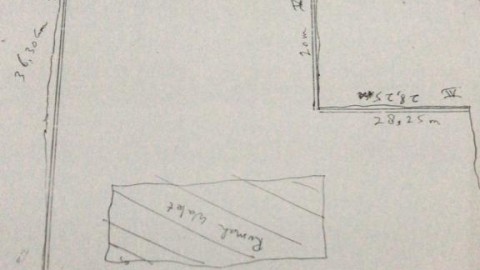 36,30m
20m
28,25m
28,25m
Rumah Walet